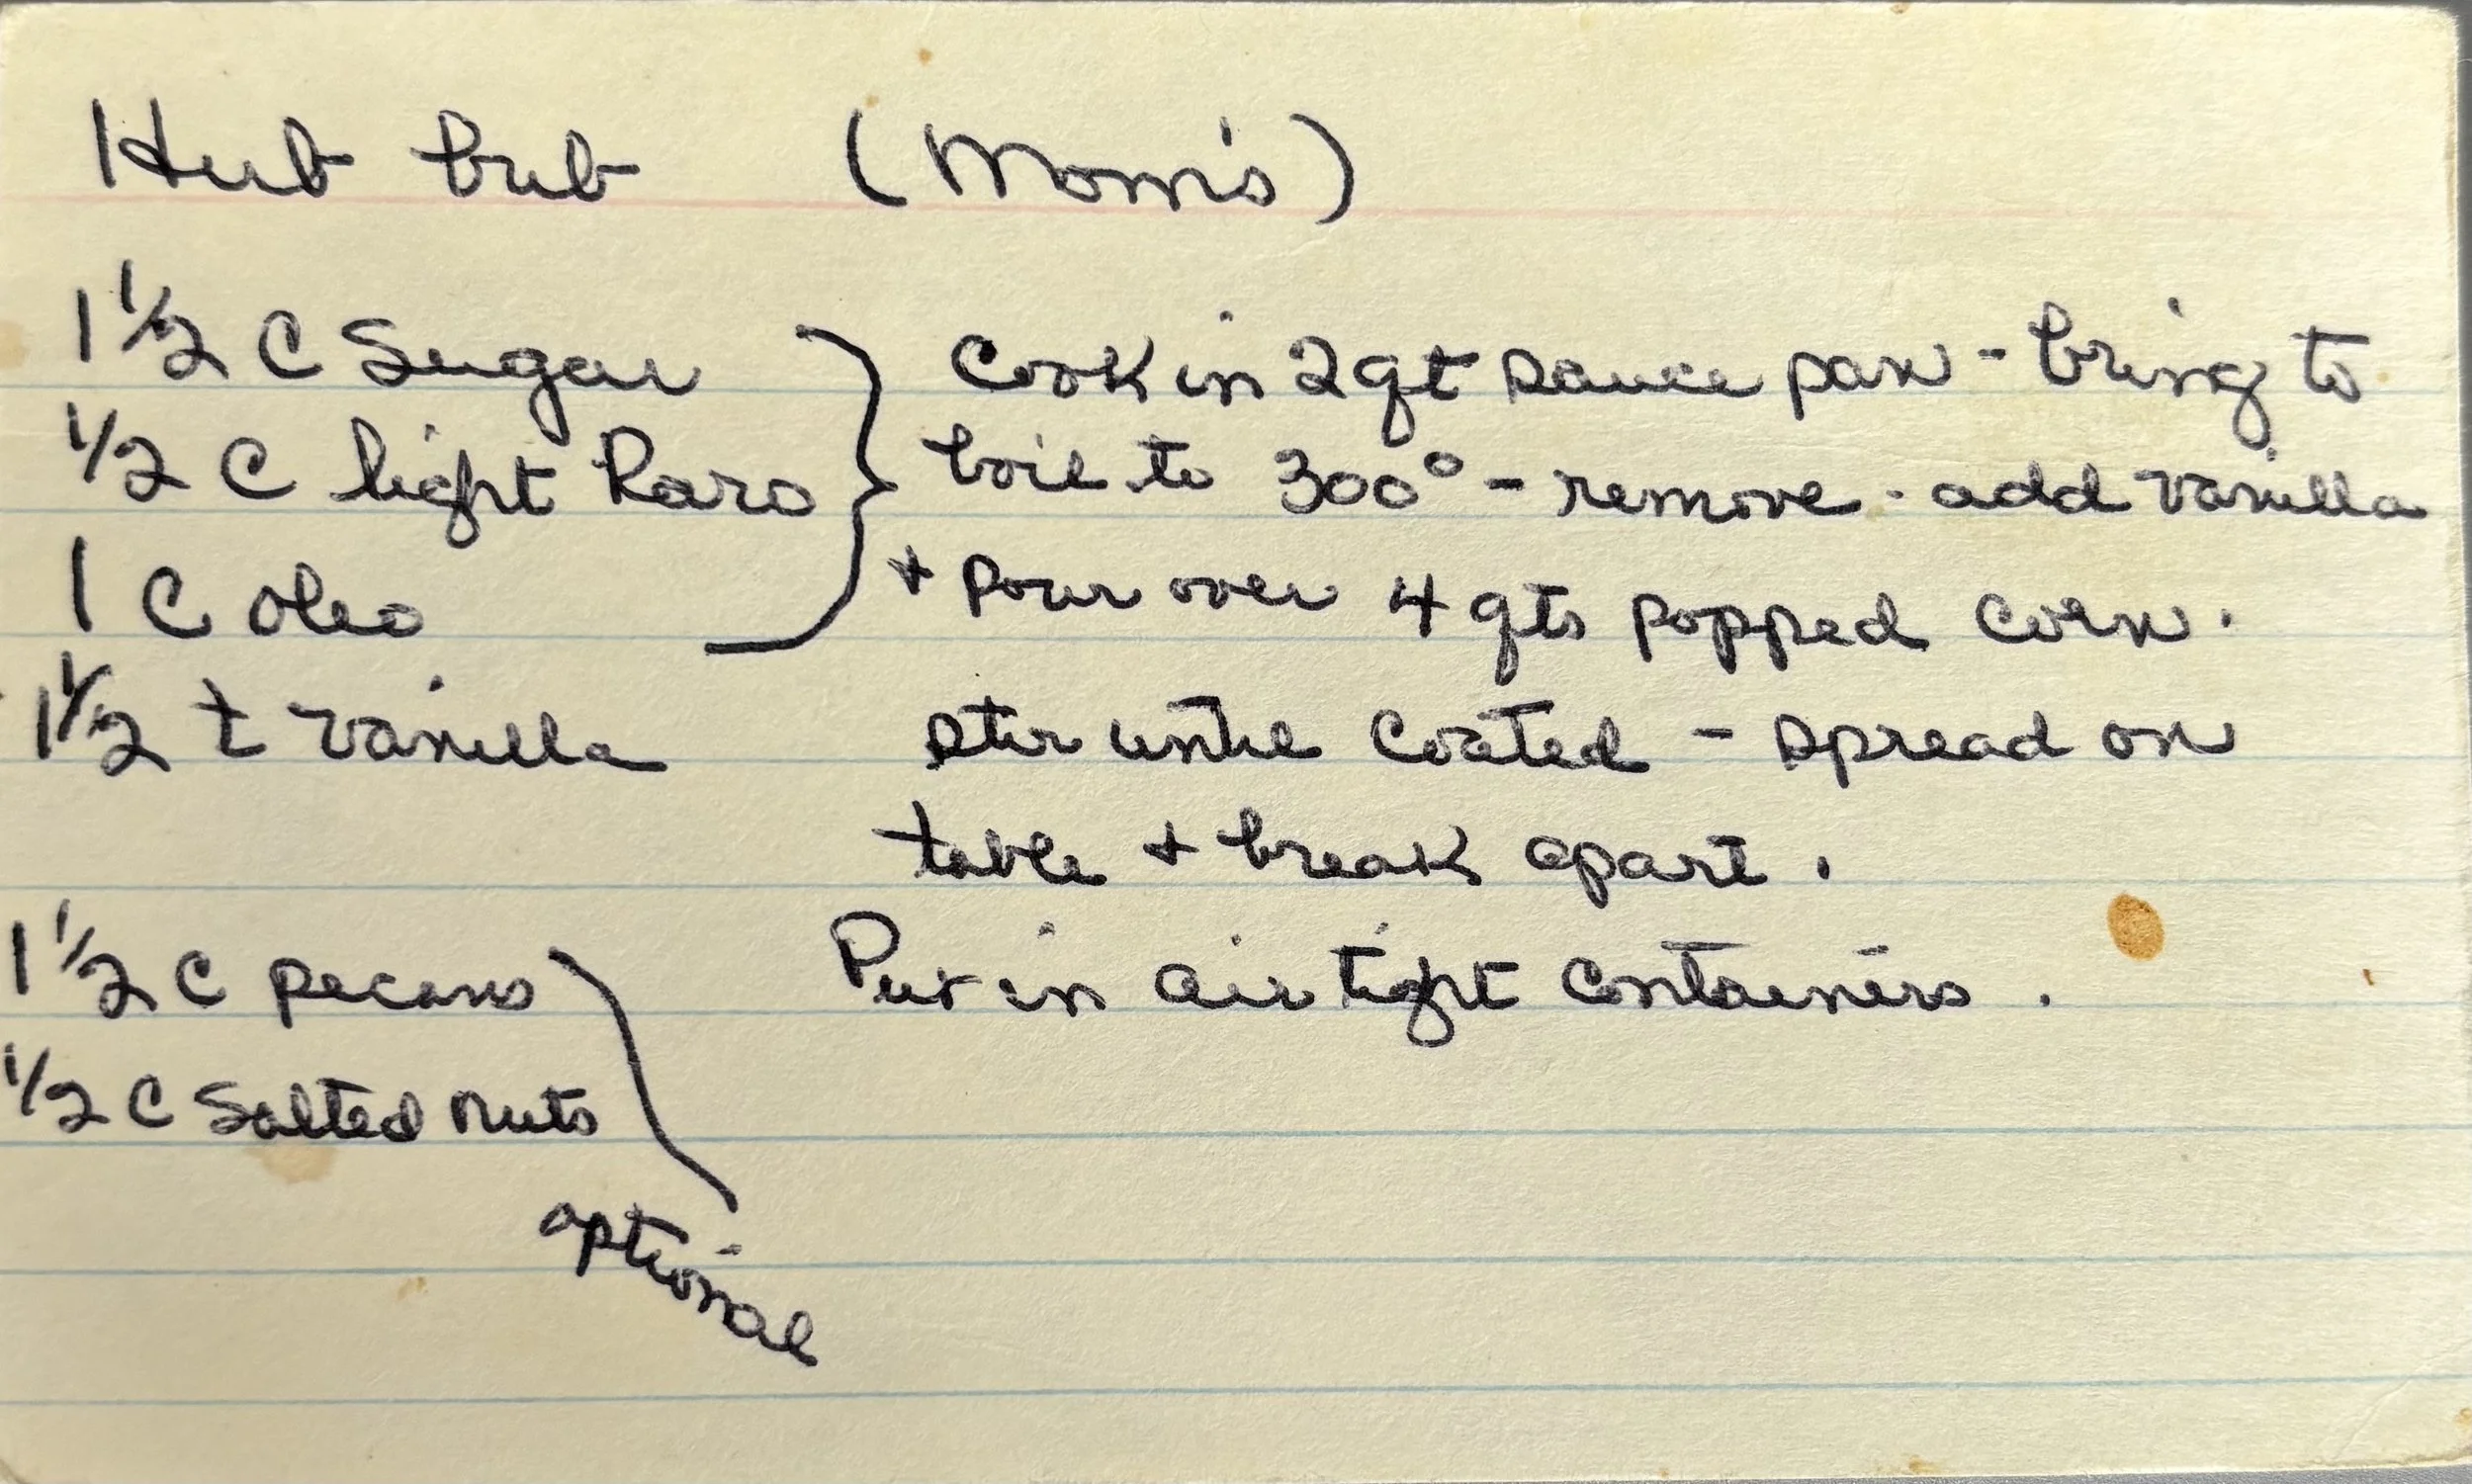 Hub bub (Mom's)
1 1/2 C Sugar
1/2 C light Karo
1 C oleo
1 1/2 t vanilla
Cook in 2 qt sauce pan - bring to
boil to 300° - remove - add vanilla
+ pour over 4 qts popped corn.
stir until coated - spread on
table + break apart.
Put in air tight containers.
1 1/2 C pecans
1/2 C Salted nuts
optional